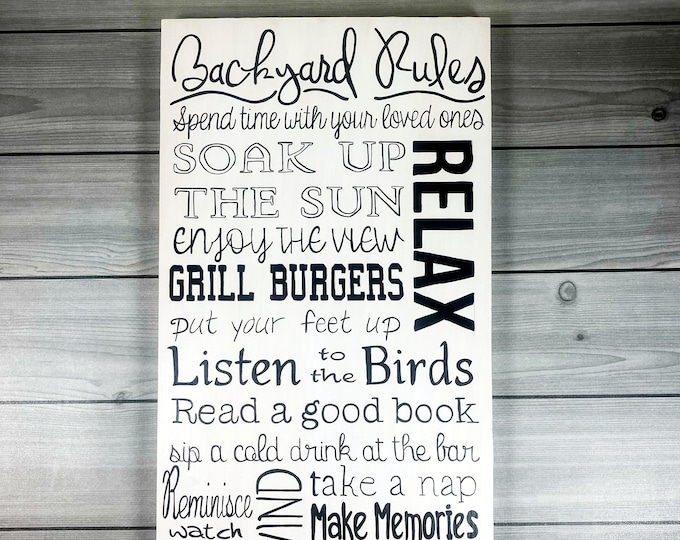 Backyard Rules
Spend time with your loved ones
SOAK UP
THE SUN
RELAX
enjoy THE VIEW
GRILL BURGERS
put your feet up
Listen to the Birds
Read a good book
sip a cold drink at the bar
Reminisce
take a nap
watch
Make Memories